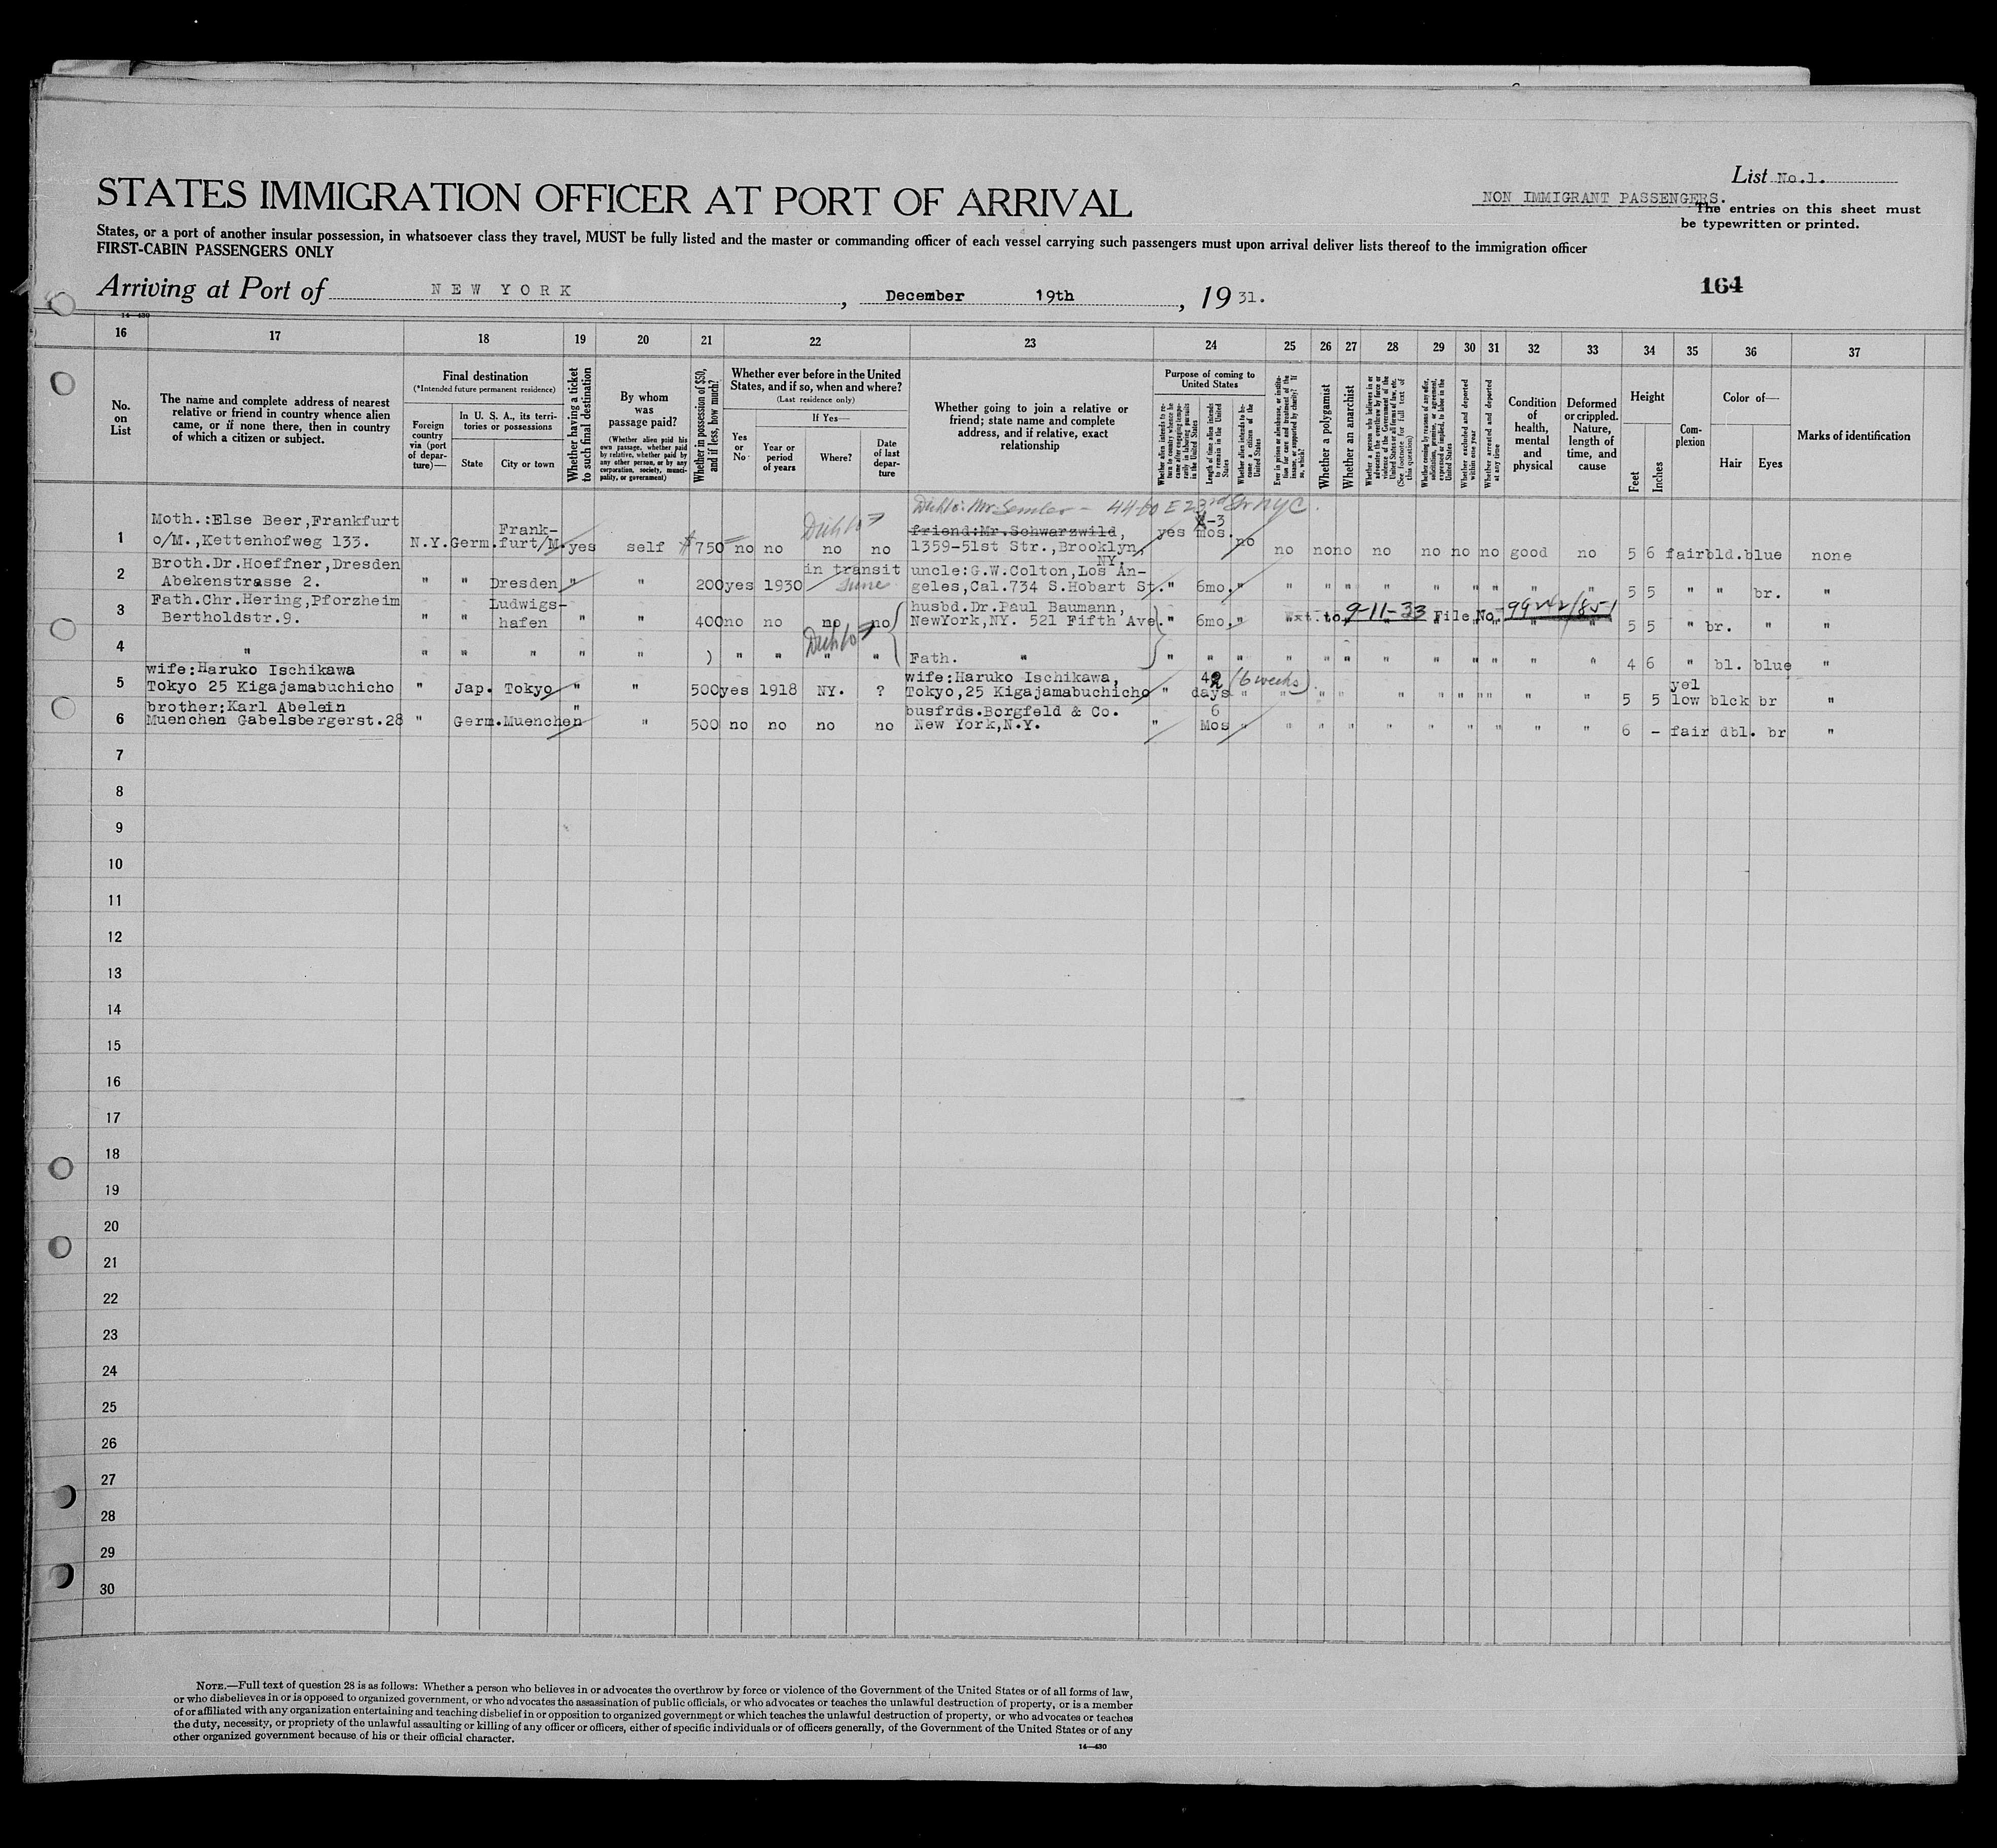 List No.1.
STATES IMMIGRATION OFFICER AT PORT OF ARRIVAL
NON IMMIGRANT PASSENGERS.
The entries on this sheet must
be typewritten or printed.
States, or a port of another insular possession, in whatsoever class they travel, MUST be fully listed and the master or commanding officer of each vessel carrying such passengers must upon arrival deliver lists thereof to the immigration officer
FIRST-CABIN PASSENGERS ONLY
Arriving at Port of NEW YORK, December 19th, 1931.
164
14—430
16 17 18 19 20 21 22 23 24 25 26 27 28 29 30 31 32 33 34 35 36 37
No. on List
The name and complete address of nearest
relative or friend in country whence alien
came, or if none there, then in country
of which a citizen or subject.
Final destination
(*Intended future permanent residence)
Foreign country via (port of departure)—
In U. S. A., its territories or possessions
State
City or town
Whether having a ticket to such final destination
By whom was passage paid?
(Whether alien paid his own passage, whether paid by relative, whether paid by any other person, or by any corporation, society, municipality, or government)
Whether in possession of $50, and if less, how much?
Whether ever before in the United States, and if so, when and where?
(Last residence only)
Yes or No
If Yes—
Year or period of years
Where?
Date of last departure
Whether going to join a relative or
friend; state name and complete
address, and if relative, exact
relationship
Purpose of coming to United States
Whether alien intends to return to country whence he came after engaging temporarily in laboring pursuits in the United States
Length of time alien intends to remain in the United States
Whether alien intends to become a citizen of the United States
Ever in prison or almshouse, or institution for care and treatment of the insane, or supported by charity? If so, which?
Whether a polygamist
Whether an anarchist
Whether a person who believes in or advocates the overthrow by force or violence of the Government of the United States or all forms of law, etc. (See footnote for full text of this question)
Whether coming by reasons of any offer, solicitation, promise, or agreement, expressed or implied, to labor in the United States
Whether excluded and deported within one year
Whether arrested and deported at any time
Condition of health, mental and physical
Deformed or crippled. Nature, length of time, and cause
Height
Feet
Inches
Complexion
Color of—
Hair
Eyes
Marks of identification
Mr. Semler - 44-60 E 23rd Str NYC.
1 Moth.:Else Beer,Frankfurt
o/M.,Kettenhofweg 133. N.Y. Germ. Frank-
furt/M. yes self $750 no no no no
friend:Mr.Schwarzwild,
1359-51st Str.,Brooklyn,
NY.
yes -3 mos. no no no no no no no no good no 5 6 fair bld. blue none
2 Broth.Dr.Hoeffner,Dresden
Abekenstrasse 2. " " Dresden " " 200 yes 1930 in transit June
uncle:G.W.Colton,Los An-
geles,Cal.734 S.Hobart St. " 6mo. " " " " " " " " " " 5 5 " " br. "
3 Fath.Chr.Hering,Pforzheim
Bertholdstr.9. " " Ludwigs-
hafen " " 400 no no no no
husbd.Dr.Paul Baumann,
NewYork,NY. 521 Fifth Ave. " 6mo. " Ext. to 9-11-33 File No. 99242/851 5 5 " br. " "
4 " " " " " " ) " " " "
Fath. " " " " " " " " " " " " " 4 6 " bl. blue "
5 wife:Haruko Ischikawa
Tokyo 25 Kigajamabuchicho " Jap. Tokyo " " 500 yes 1918 NY. ?
wife:Haruko Ischikawa,
Tokyo,25 Kigajamabuchicho " 42 days (6 weeks) " " " " " " " " " " 5 5 yel
low blck br "
6 brother:Karl Abelein
Muenchen Gabelsbergerst.28 " Germ. Muenchen " " 500 no no no no
busfrds.Borgfeld & Co.
New York,N.Y. " 6 Mos " " " " " " " " " " 6 - fair dbl. br "
7
8
9
10
11
12
13
14
15
16
17
18
19
20
21
22
23
24
25
26
27
28
29
30
NOTE.—Full text of question 28 is as follows: Whether a person who believes in or advocates the overthrow by force or violence of the Government of the United States or of all forms of law,
or who disbelieves in or is opposed to organized government, or who advocates the assassination of public officials, or who advocates or teaches the unlawful destruction of property, or is a member
of or affiliated with any organization entertaining and teaching disbelief in or opposition to organized government or which teaches the unlawful destruction of property, or who advocates or teaches
the duty, necessity, or propriety of the unlawful assaulting or killing of any officer or officers, either of specific individuals or of officers generally, of the Government of the United States or of any
other organized government because of his or their official character.
14—430